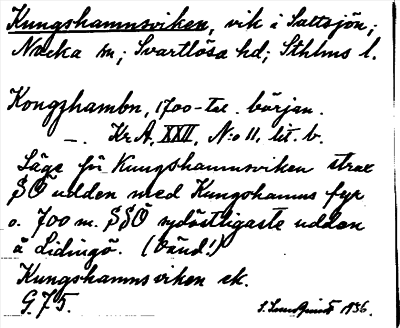 Kungshamnsviken, vik i Saltsjön;
Nacka sn; Svartlösa hd; Sthlms l.
Kongzhambn, 1700-tal. början.
—. Kr.A, XXII, N:o 11, lit. b.
Läge för Kungshamnsviken strax
SO udden med Kungshamns fyr
o. 700 m. SSO sydöstligaste udden
å Lidingö. (Vänd!)
Kungshamnsviken ek.
G.75.
1936.